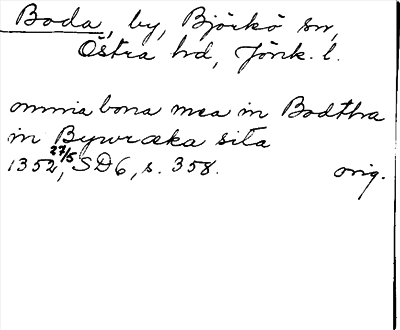 Boda, by, Björkö sn,
Östra hd, Jönk. l.
omnia bona mea in Bodthra
in Bywræka sita
1352 27/5, SD 6, s. 358. orig.